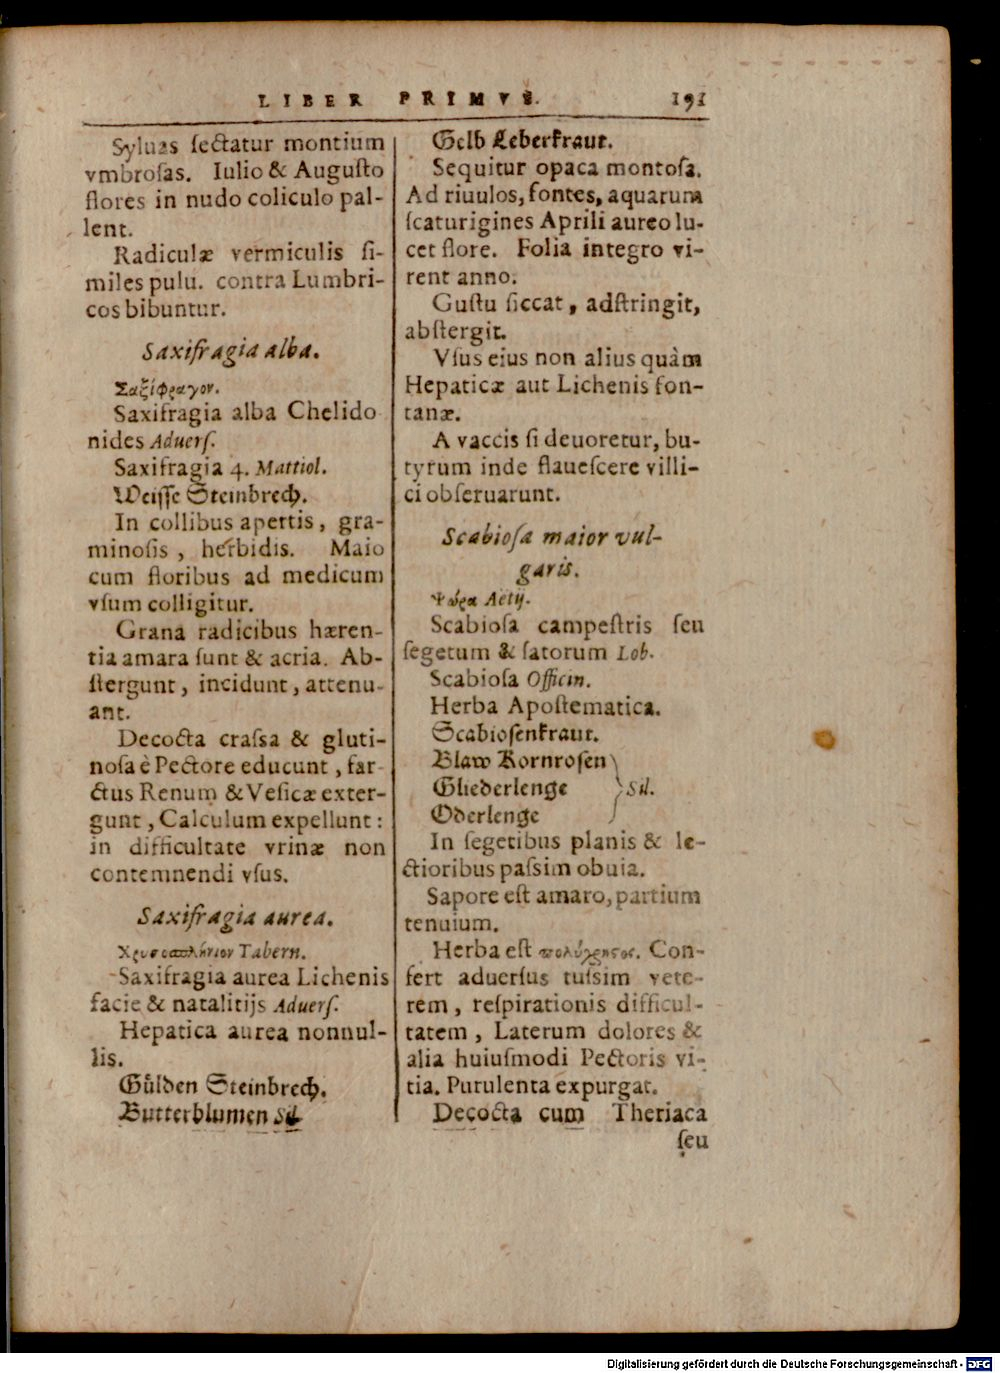 LIBER PRIMVS. 191
Syluas ſectatur montium
vmbroſas. Iulio & Auguſto
flores in nudo coliculo pal-
lent.
Radiculæ vermiculis ſi-
miles pulu. contra Lumbri-
cos bibuntur.
Saxifragia alba.
Σαξίφραγον.
Saxifragia alba Chelido
nides Aduerſ.
Saxifragia 4. Mattiol.
Weiſſe Steinbrech.
In collibus apertis, gra-
minoſis, herbidis. Maio
cum floribus ad medicum
vſum colligitur.
Grana radicibus hæren-
tia amara ſunt & acria. Ab-
ſtergunt, incidunt, attenu-
ant.
Decocta craſſa & gluti-
noſa è Pectore educunt, far-
ctus Renum & Veſicæ exter-
gunt, Calculum expellunt:
in difficultate vrinæ non
contemnendi vſus.
Saxifragia aurea.
Χρυσοσπλήνιον Tabern.
Saxifragia aurea Lichenis
facie & natalitijs Aduerſ.
Hepatica aurea nonnul-
lis.
Gůlden Steinbrech.
Butterblumen Sil.
Gelb Leberkraut.
Sequitur opaca montoſa.
Ad riuulos, fontes, aquarum
ſcaturigines Aprili aureo lu-
cet flore. Folia integro vi-
rent anno.
Guſtu ſiccat, adſtringit,
abſtergit.
Vſus eius non alius quàm
Hepaticæ aut Lichenis fon-
tanæ.
A vaccis ſi deuoretur, bu-
tyrum inde flaueſcere villi-
ci obſeruarunt.
Scabioſa maior vul-
garis.
Ψώρα Aetij.
Scabioſa campeſtris ſeu
ſegetum & ſatorum Lob.
Scabioſa Officin.
Herba Apoſtematica.
Scabioſenkraut.
Blaw Kornroſen
Gliederlenge } Sil.
Oderlenge
In ſegetibus planis & le-
ctioribus paſſim obuia.
Sapore eſt amaro, partium
tenuium.
Herba eſt πολύχρηστος. Con-
fert aduerſus tuſsim vete-
rem, reſpirationis difficul-
tatem, Laterum dolores &
alia huiuſmodi Pectoris vi-
tia. Purulenta expurgat.
Decocta cum Theriaca
ſeu
Digitalisierung gefördert durch die Deutsche Forschungsgemeinschaft - DFG